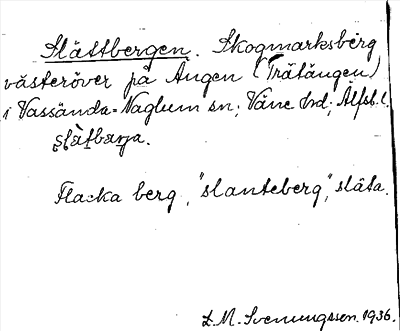 Slättbergen. Skogmarksberg
västeröver på Ängen (Trätängen)
i Vassända-Naglum sn, Väne hd, Älfsb. l.
slàtbærja.
Flacka berg, "slanteberg", släta.
L.M. Svenungsson. 1936.